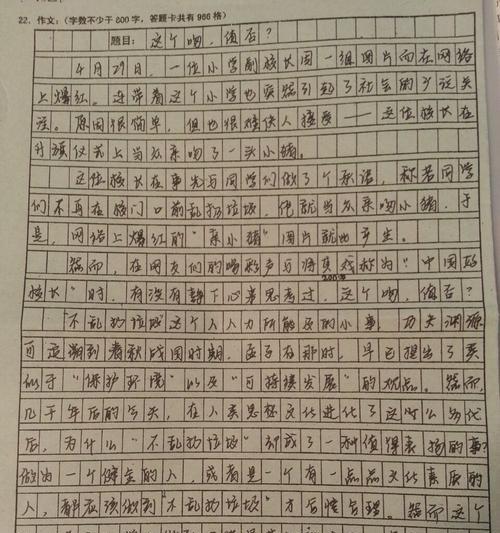 22. 作文：（字数不少于 800 字，答题卡共有 966 格）
题目：这个吻，值否？
4月29日，一位小学副校长因一组图片而在网络
上爆红。连带着这个小学也突然引起了社会的广泛关
注。原因很简单，但也很难使人接受——这位校长在
升旗仪式上当众亲吻了一头小猪。
这位校长在事先与同学们做了个承诺，称若同学
们不再在校门口前乱扔垃圾，他就当众亲吻小猪，于
是，网络上爆红的"亲小猪"图片就此产生。
然而，在网友们的喝彩声与将其戏称为"中国好
200字
校长"时，有没有静下心来思考过，这个吻，值否？
"不乱扔垃圾"这个人人力所能及的小事，历史渊源
可追溯到春秋战国时期，孟子在那时，早已提出了类
似于"保护环境"以及"可持续发展"的观点。然而，
几千年后的今天，在人类思想文化进化了这么多代
后，为什么"不乱扔垃圾"却成了一种值得表扬的事？
做为一个健全的人，或者是一个有一点点文化素质的
人，都应该做到"不乱扔垃圾"才合情合理。然而这个